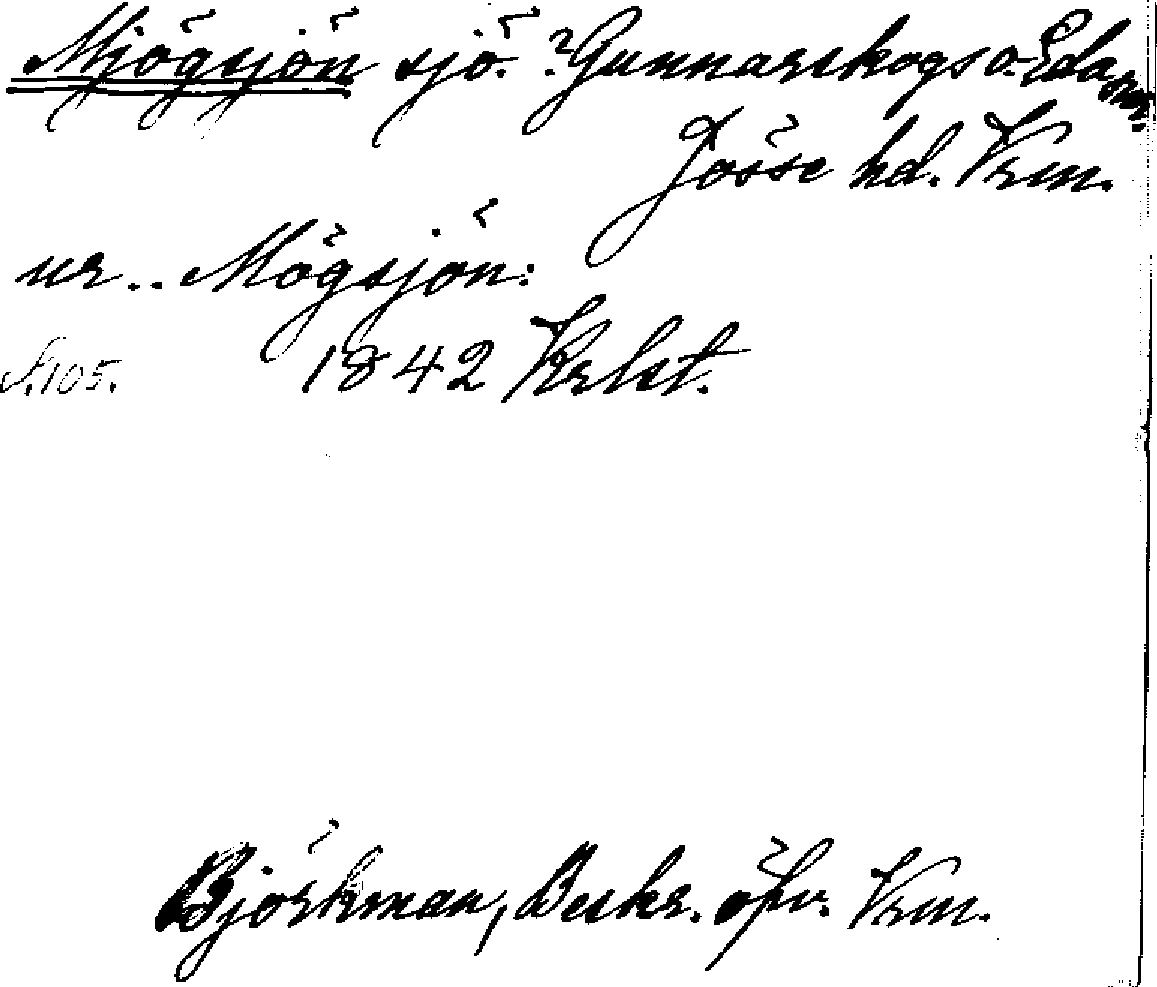 Mjögsjön sjö. ? Gunnarskogs o. Eda snr.
Jösse hd. Vrm.
ur .. Mögsjön:
S. 105. 1842 Krlst.
Björkman, Beskr. öfv. Vrm.